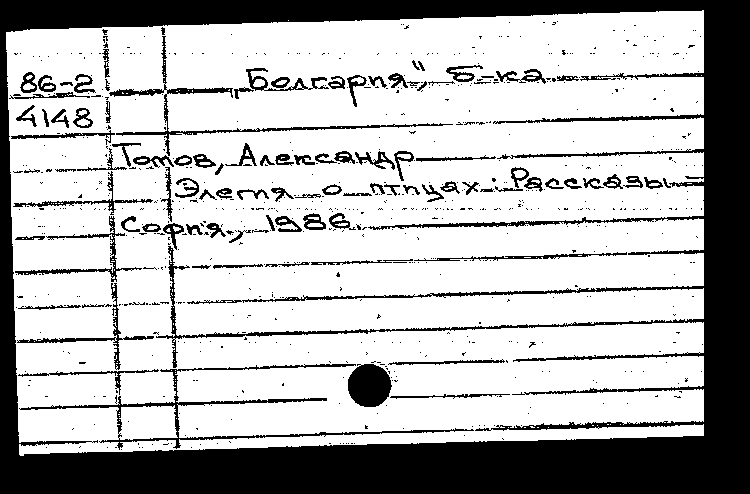 86-2 „Болгария“, б-ка
4148
Томов, Александр
Элегия о птицах : Рассказы –
София, 1986.